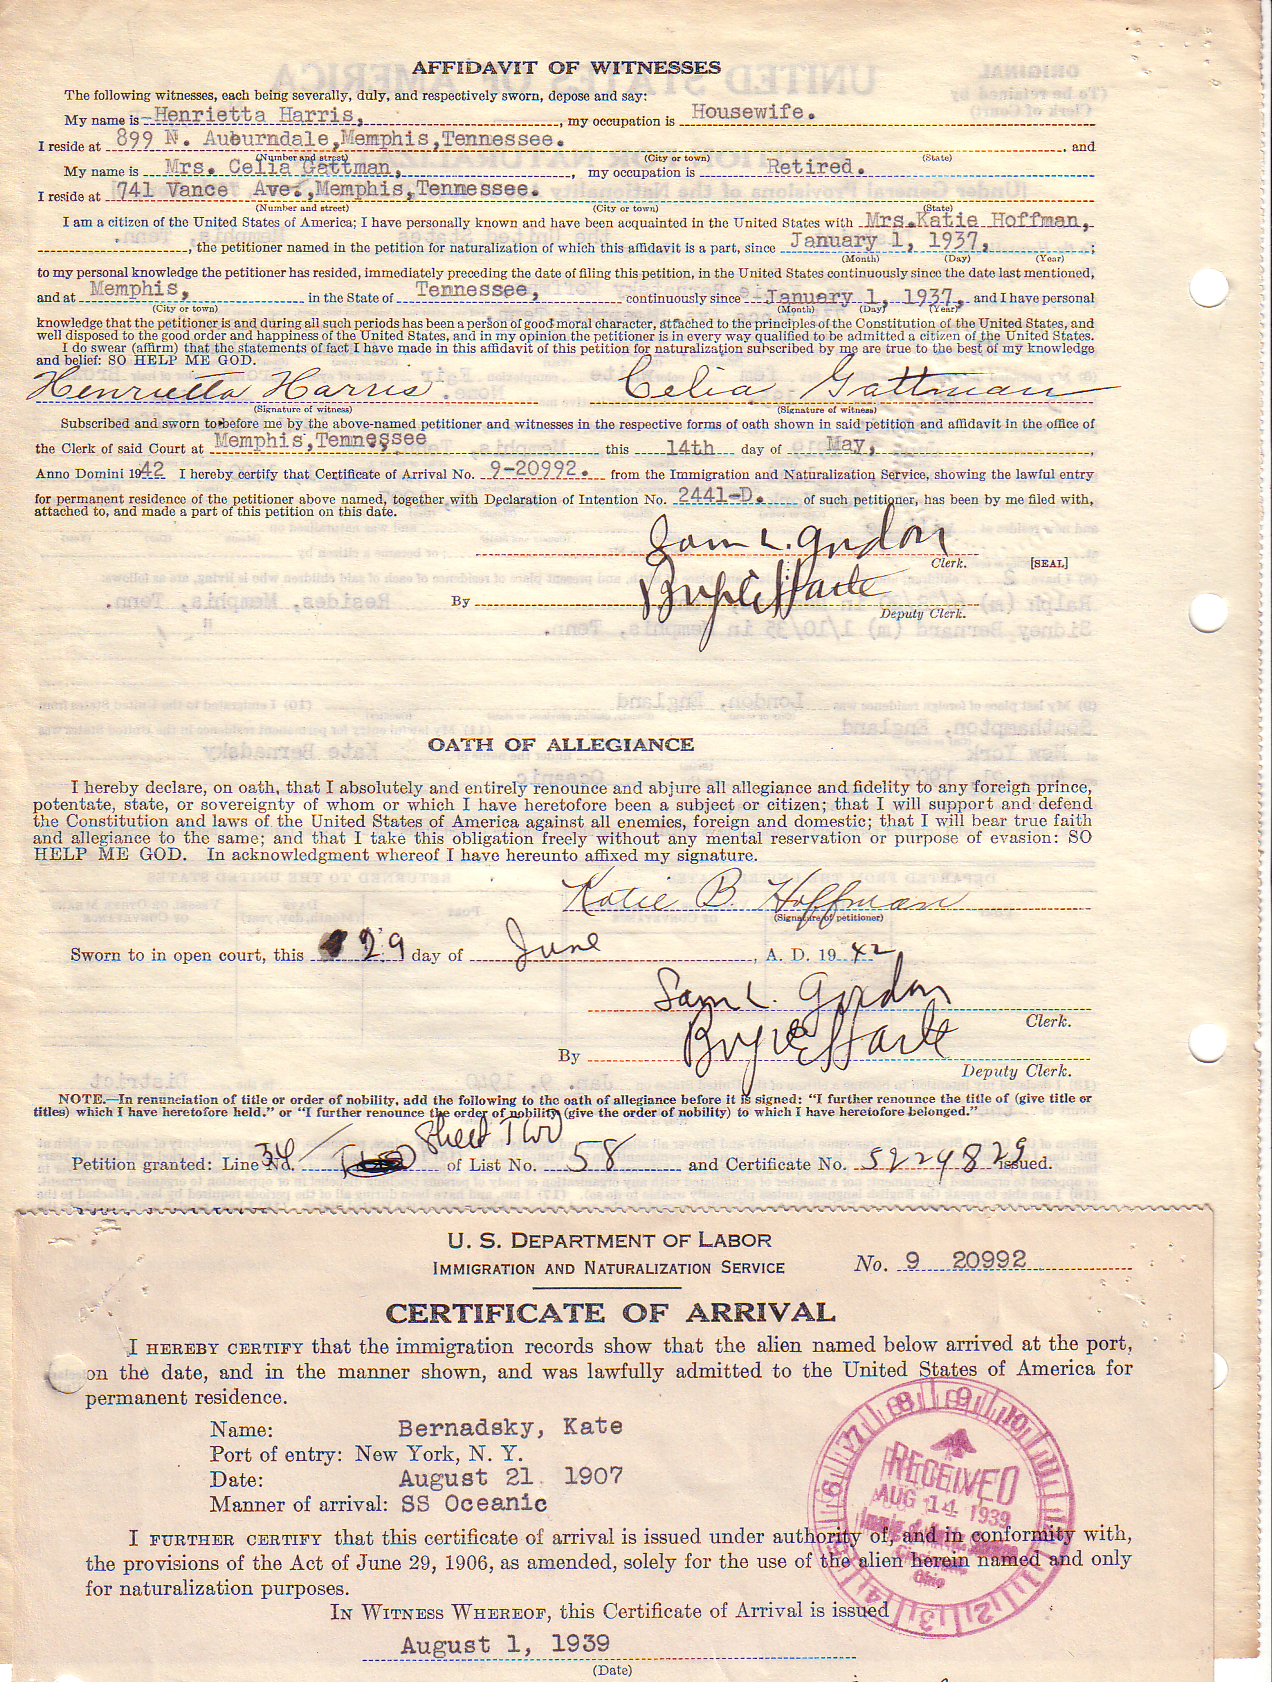 AFFIDAVIT OF WITNESSES
The following witnesses, each being severally, duly, and respectively sworn, depose and say:
My name is Henrietta Harris, my occupation is Housewife.
I reside at 899 N. Auburndale, Memphis, Tennessee. and
(Number and street) (City or town) (State)
My name is Mrs. Celia Gattman, my occupation is Retired.
I reside at 741 Vance Ave., Memphis, Tennessee.
(Number and street) (City or town) (State)
I am a citizen of the United States of America; I have personally known and have been acquainted in the United States with Mrs. Katie Hoffman,
, the petitioner named in the petition for naturalization of which this affidavit is a part, since January 1, 1937, ;
(Month) (Day) (Year)
to my personal knowledge the petitioner has resided, immediately preceding the date of filing this petition, in the United States continuously since the date last mentioned,
and at Memphis, in the State of Tennessee, continuously since January 1, 1937, and I have personal
(City or town) (Month) (Day) (Year)
knowledge that the petitioner is and during all such periods has been a person of good moral character, attached to the principles of the Constitution of the United States, and
well disposed to the good order and happiness of the United States, and in my opinion the petitioner is in every way qualified to be admitted a citizen of the United States.
I do swear (affirm) that the statements of fact I have made in this affidavit of this petition for naturalization subscribed by me are true to the best of my knowledge
and belief: SO HELP ME GOD.
Henrietta Harris Celia Gattman
(Signature of witness) (Signature of witness)
Subscribed and sworn to before me by the above-named petitioner and witnesses in the respective forms of oath shown in said petition and affidavit in the office of
the Clerk of said Court at Memphis, Tennessee this 14th day of May,
Anno Domini 1942 I hereby certify that Certificate of Arrival No. 9-20992. from the Immigration and Naturalization Service, showing the lawful entry
for permanent residence of the petitioner above named, together with Declaration of Intention No. 2441-D. of such petitioner, has been by me filed with,
attached to, and made a part of this petition on this date.
Sam L. Gordon
Clerk. [SEAL]
By
Deputy Clerk.
OATH OF ALLEGIANCE
I hereby declare, on oath, that I absolutely and entirely renounce and abjure all allegiance and fidelity to any foreign prince,
potentate, state, or sovereignty of whom or which I have heretofore been a subject or citizen; that I will support and defend
the Constitution and laws of the United States of America against all enemies, foreign and domestic; that I will bear true faith
and allegiance to the same; and that I take this obligation freely without any mental reservation or purpose of evasion: SO
HELP ME GOD. In acknowledgment whereof I have hereunto affixed my signature.
Katie B. Hoffman
(Signature of petitioner)
Sworn to in open court, this 29 day of June, A. D. 1942
Sam L. Gordon
Clerk.
By
Deputy Clerk.
NOTE.—In renunciation of title or order of nobility, add the following to the oath of allegiance before it is signed: "I further renounce the title of (give title or
titles) which I have heretofore held." or "I further renounce the order of nobility (give the order of nobility) to which I have heretofore belonged."
Sheet Two
Petition granted: Line No. 34 of List No. 58 and Certificate No. 5224829 issued.
U. S. DEPARTMENT OF LABOR
IMMIGRATION AND NATURALIZATION SERVICE
No. 9 20992
CERTIFICATE OF ARRIVAL
I HEREBY CERTIFY that the immigration records show that the alien named below arrived at the port,
on the date, and in the manner shown, and was lawfully admitted to the United States of America for
permanent residence.
Name: Bernadsky, Kate
Port of entry: New York, N. Y.
Date: August 21 1907
Manner of arrival: SS Oceanic
RECEIVED
AUG 14 1939
Ohio
I FURTHER CERTIFY that this certificate of arrival is issued under authority of, and in conformity with,
the provisions of the Act of June 29, 1906, as amended, solely for the use of the alien herein named and only
for naturalization purposes.
IN WITNESS WHEREOF, this Certificate of Arrival is issued
August 1, 1939
(Date)